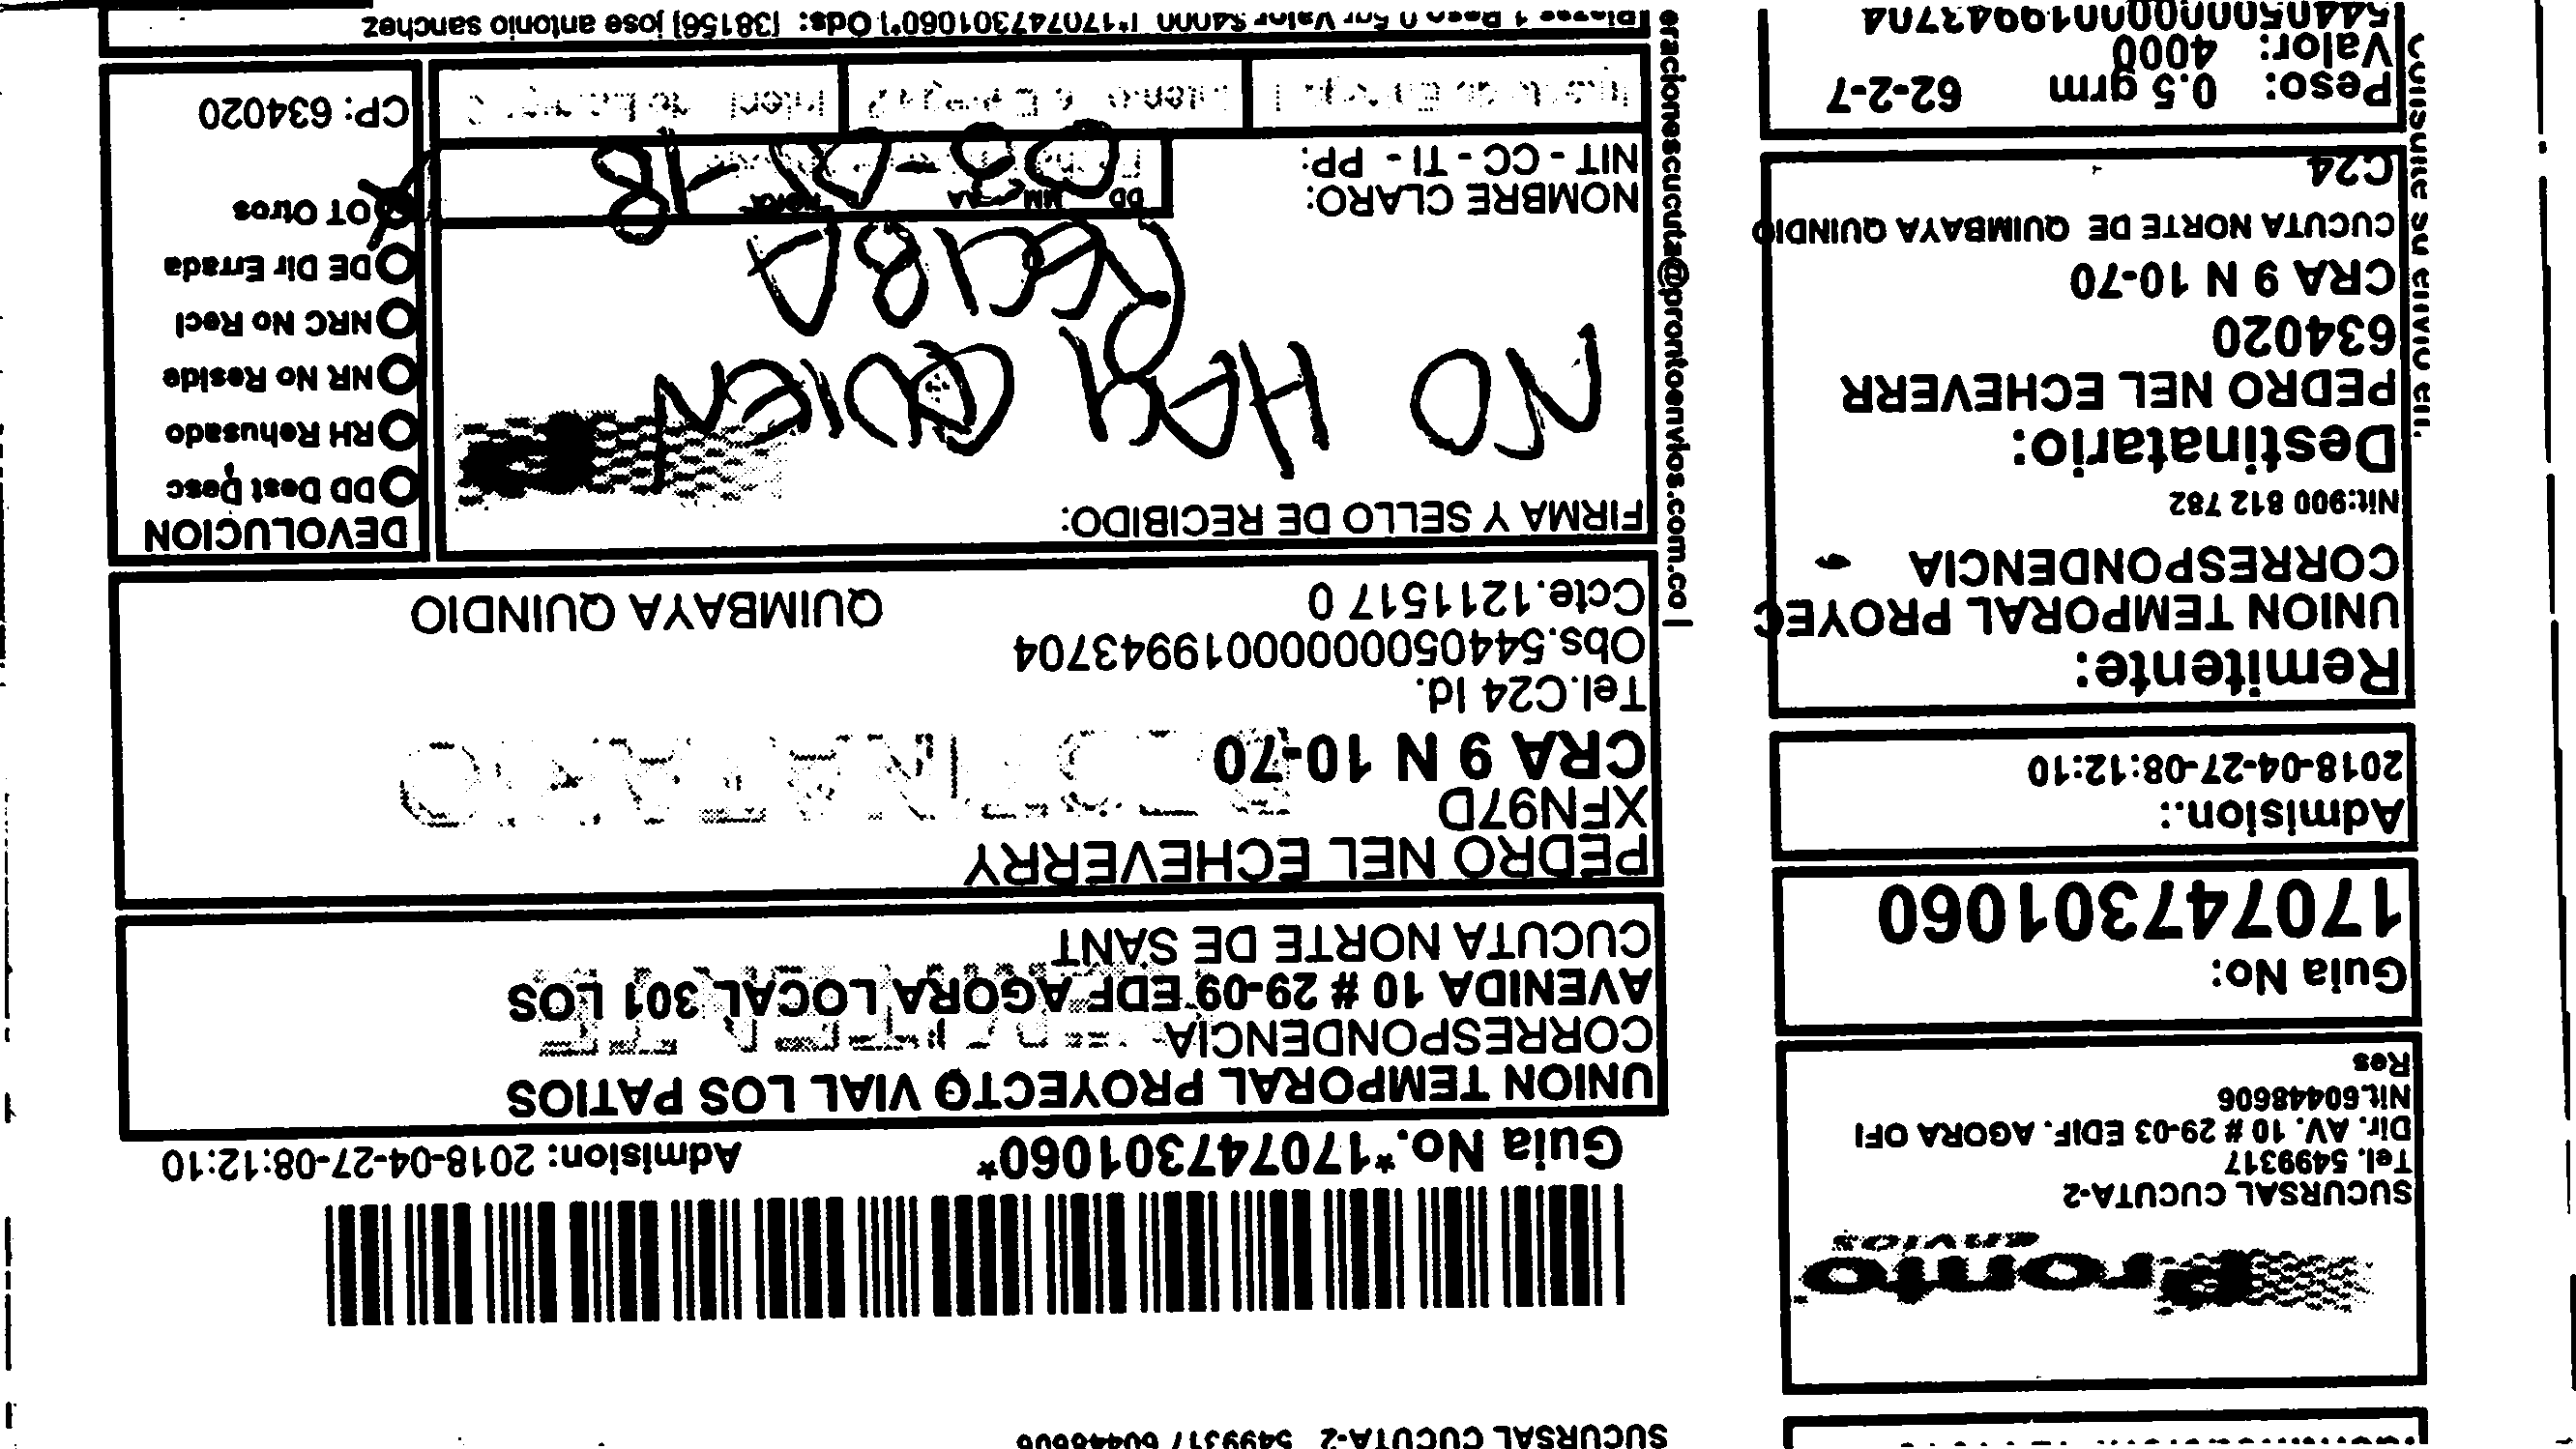 SUCURSAL CUCUTA-2 5499317 60448606
Pronto
envios
SUCURSAL CUCUTA-2
Tel. 5499317
Dir. AV. 10 # 29-03 EDIF. AGORA OFI
Nit.60448606
Res
Guia No:
170747301060
Admision.:
2018-04-27-08:12:10
Remitente:
UNION TEMPORAL PROYEC
CORRESPONDENCIA
Nit:900 812 782
Destinatario:
PEDRO NEL ECHEVERR
634020
CRA 9 N 10-70
CUCUTA NORTE DE QUIMBAYA QUINDIO
C24
Peso: 0.5 grm 62-2-7
Valor: 4000
5440500000019943704
Consulte su envio en:
eracionescucuta@prontoenvios.com.co |
Guia No.*170747301060*
Admision: 2018-04-27-08:12:10
UNION TEMPORAL PROYECTO VIAL LOS PATIOS
CORRESPONDENCIA
AVENIDA 10 # 29-09 EDF AGORA LOCAL 301 LOS
CUCUTA NORTE DE SANT
REMITENTE
PEDRO NEL ECHEVERRY
XFN97D
CRA 9 N 10-70
DESTINATARIO
Tel.C24 Id.
Obs.54405000000019943704
Ccte.12115170
QUIMBAYA QUINDIO
FIRMA Y SELLO DE RECIBIDO:
NO HAY QUIEN
RECIBA
NOMBRE CLARO:
NIT - CC - TI - PP:
DD MM AA HORA
DEVOLUCION
DD Dest Desc
RH Rehusado
NR No Reside
NRC No Recl
DE Dir Errada
OT Otros
CP: 634020
Piezas 1 Peso 0.5gr Valor $4000 [*170747301060*] Ods: [38156] jose antonio sanchez